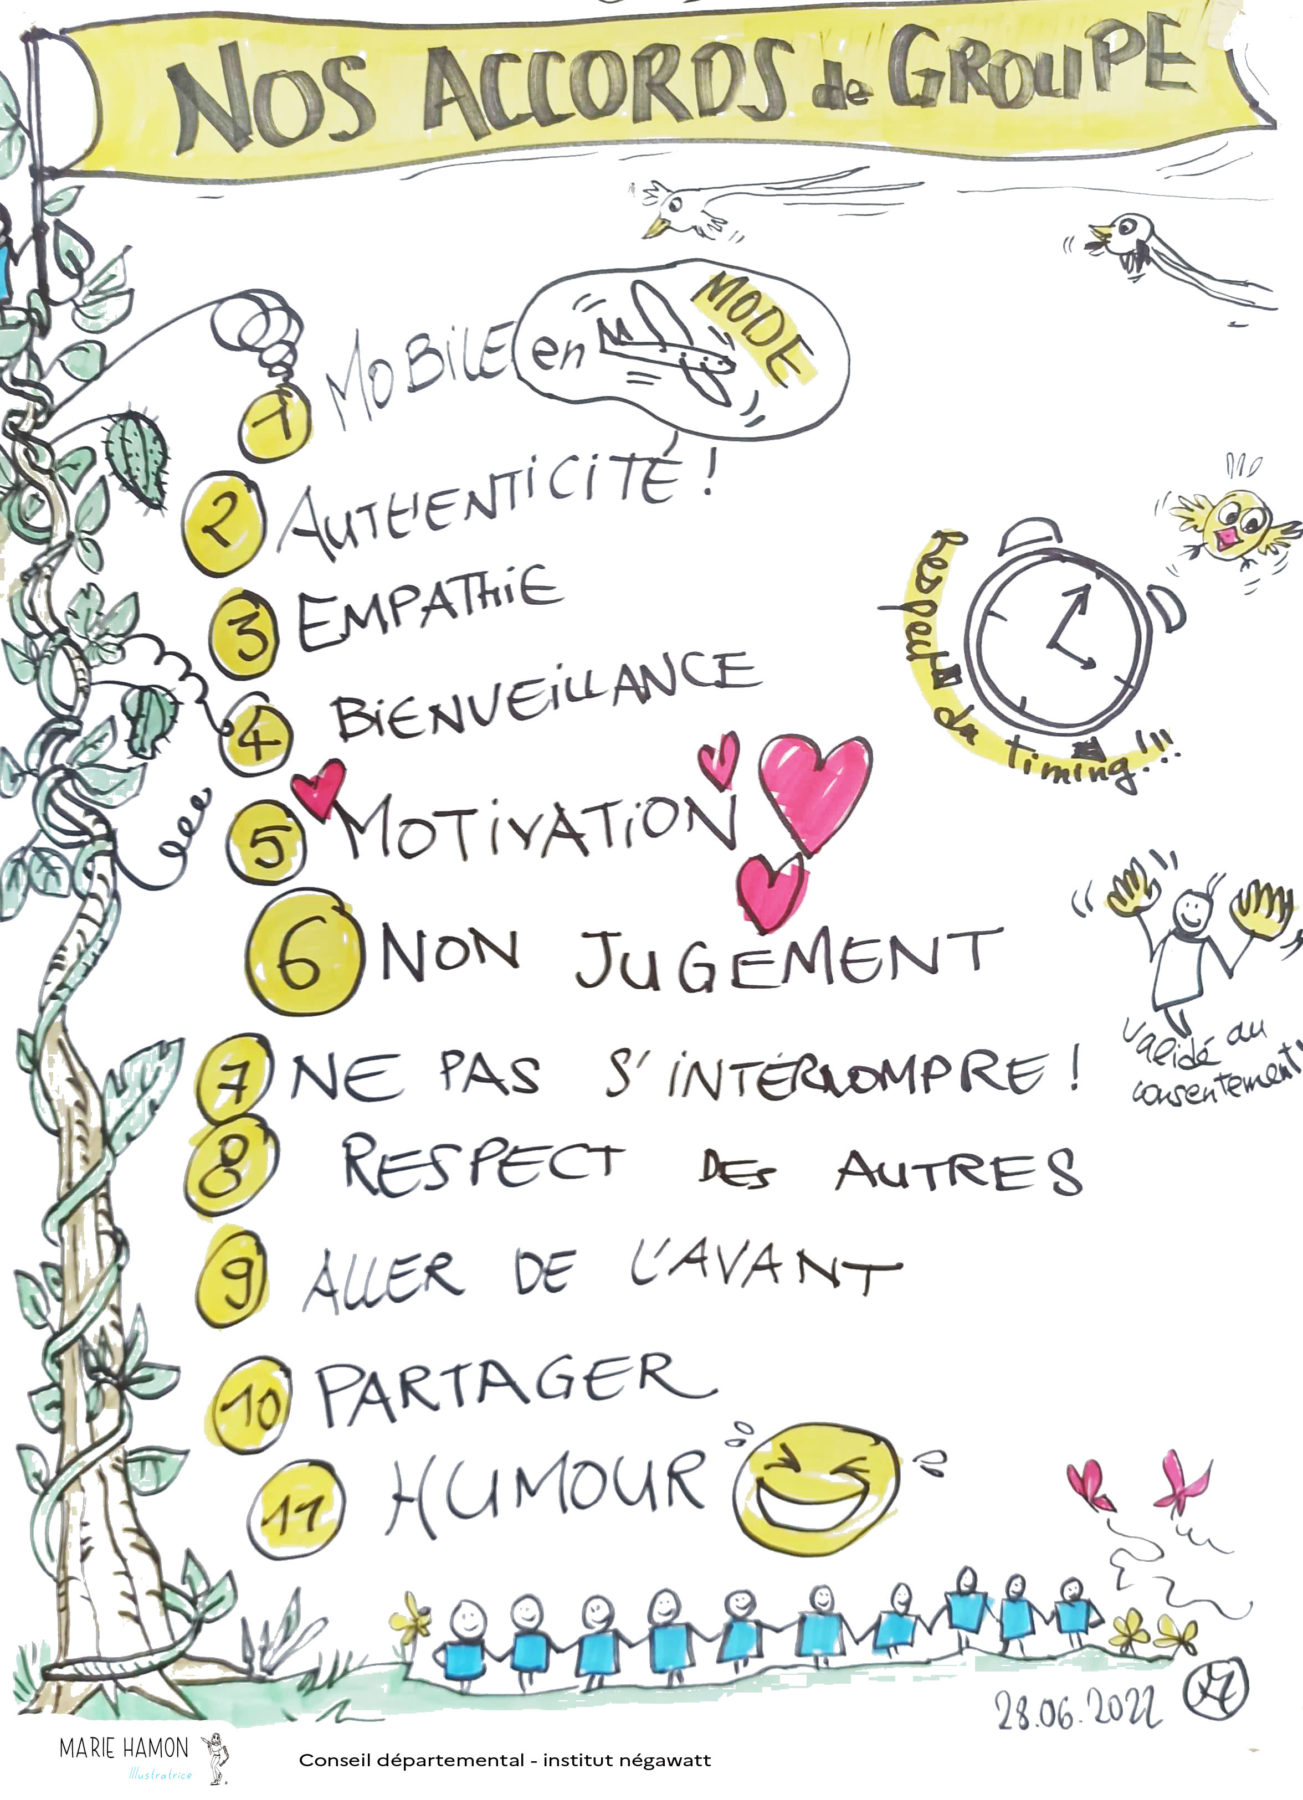 NOS ACCORDS de GROUPE
1 MOBILE en MODE
2 AUTHENTICITÉ !
3 EMPATHIE
4 BIENVEILLANCE
Respect du timing !!!
5 MOTIVATION
6 NON JUGEMENT
validé au
consentement
7 NE PAS S'INTERROMPRE !
8 RESPECT DES AUTRES
9 ALLER DE L'AVANT
10 PARTAGER
11 HUMOUR
28.06.2022
MARIE HAMON
Illustratrice
Conseil départemental - institut négawatt